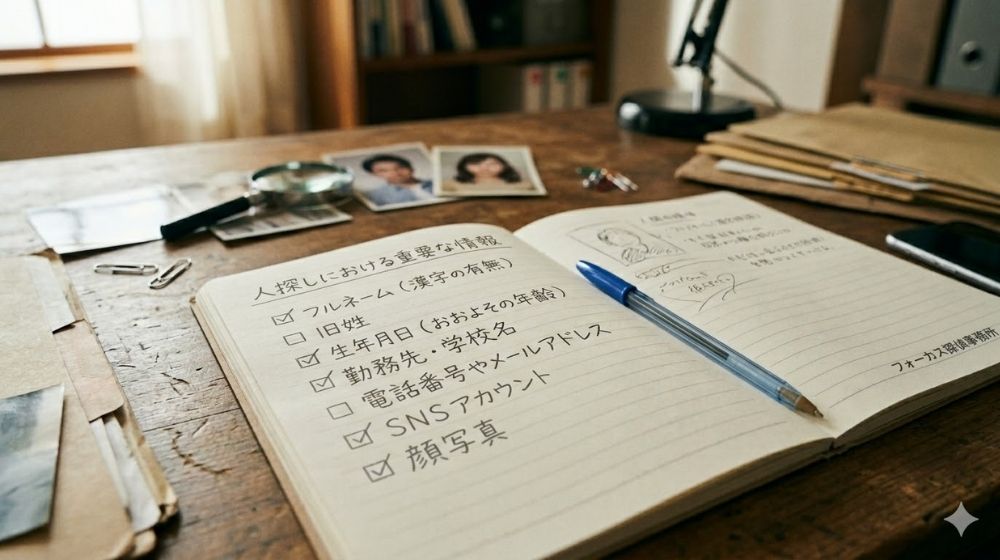 人探しにおける重要な情報
☑ フルネーム（漢字の有無）
☐ 旧姓
☑ 生年月日（おおよその年齢）
☑ 勤務先・学校名
☐ 電話番号やメールアドレス
☑ SNSアカウント
☑ 顔写真
フォーカス探偵事務所